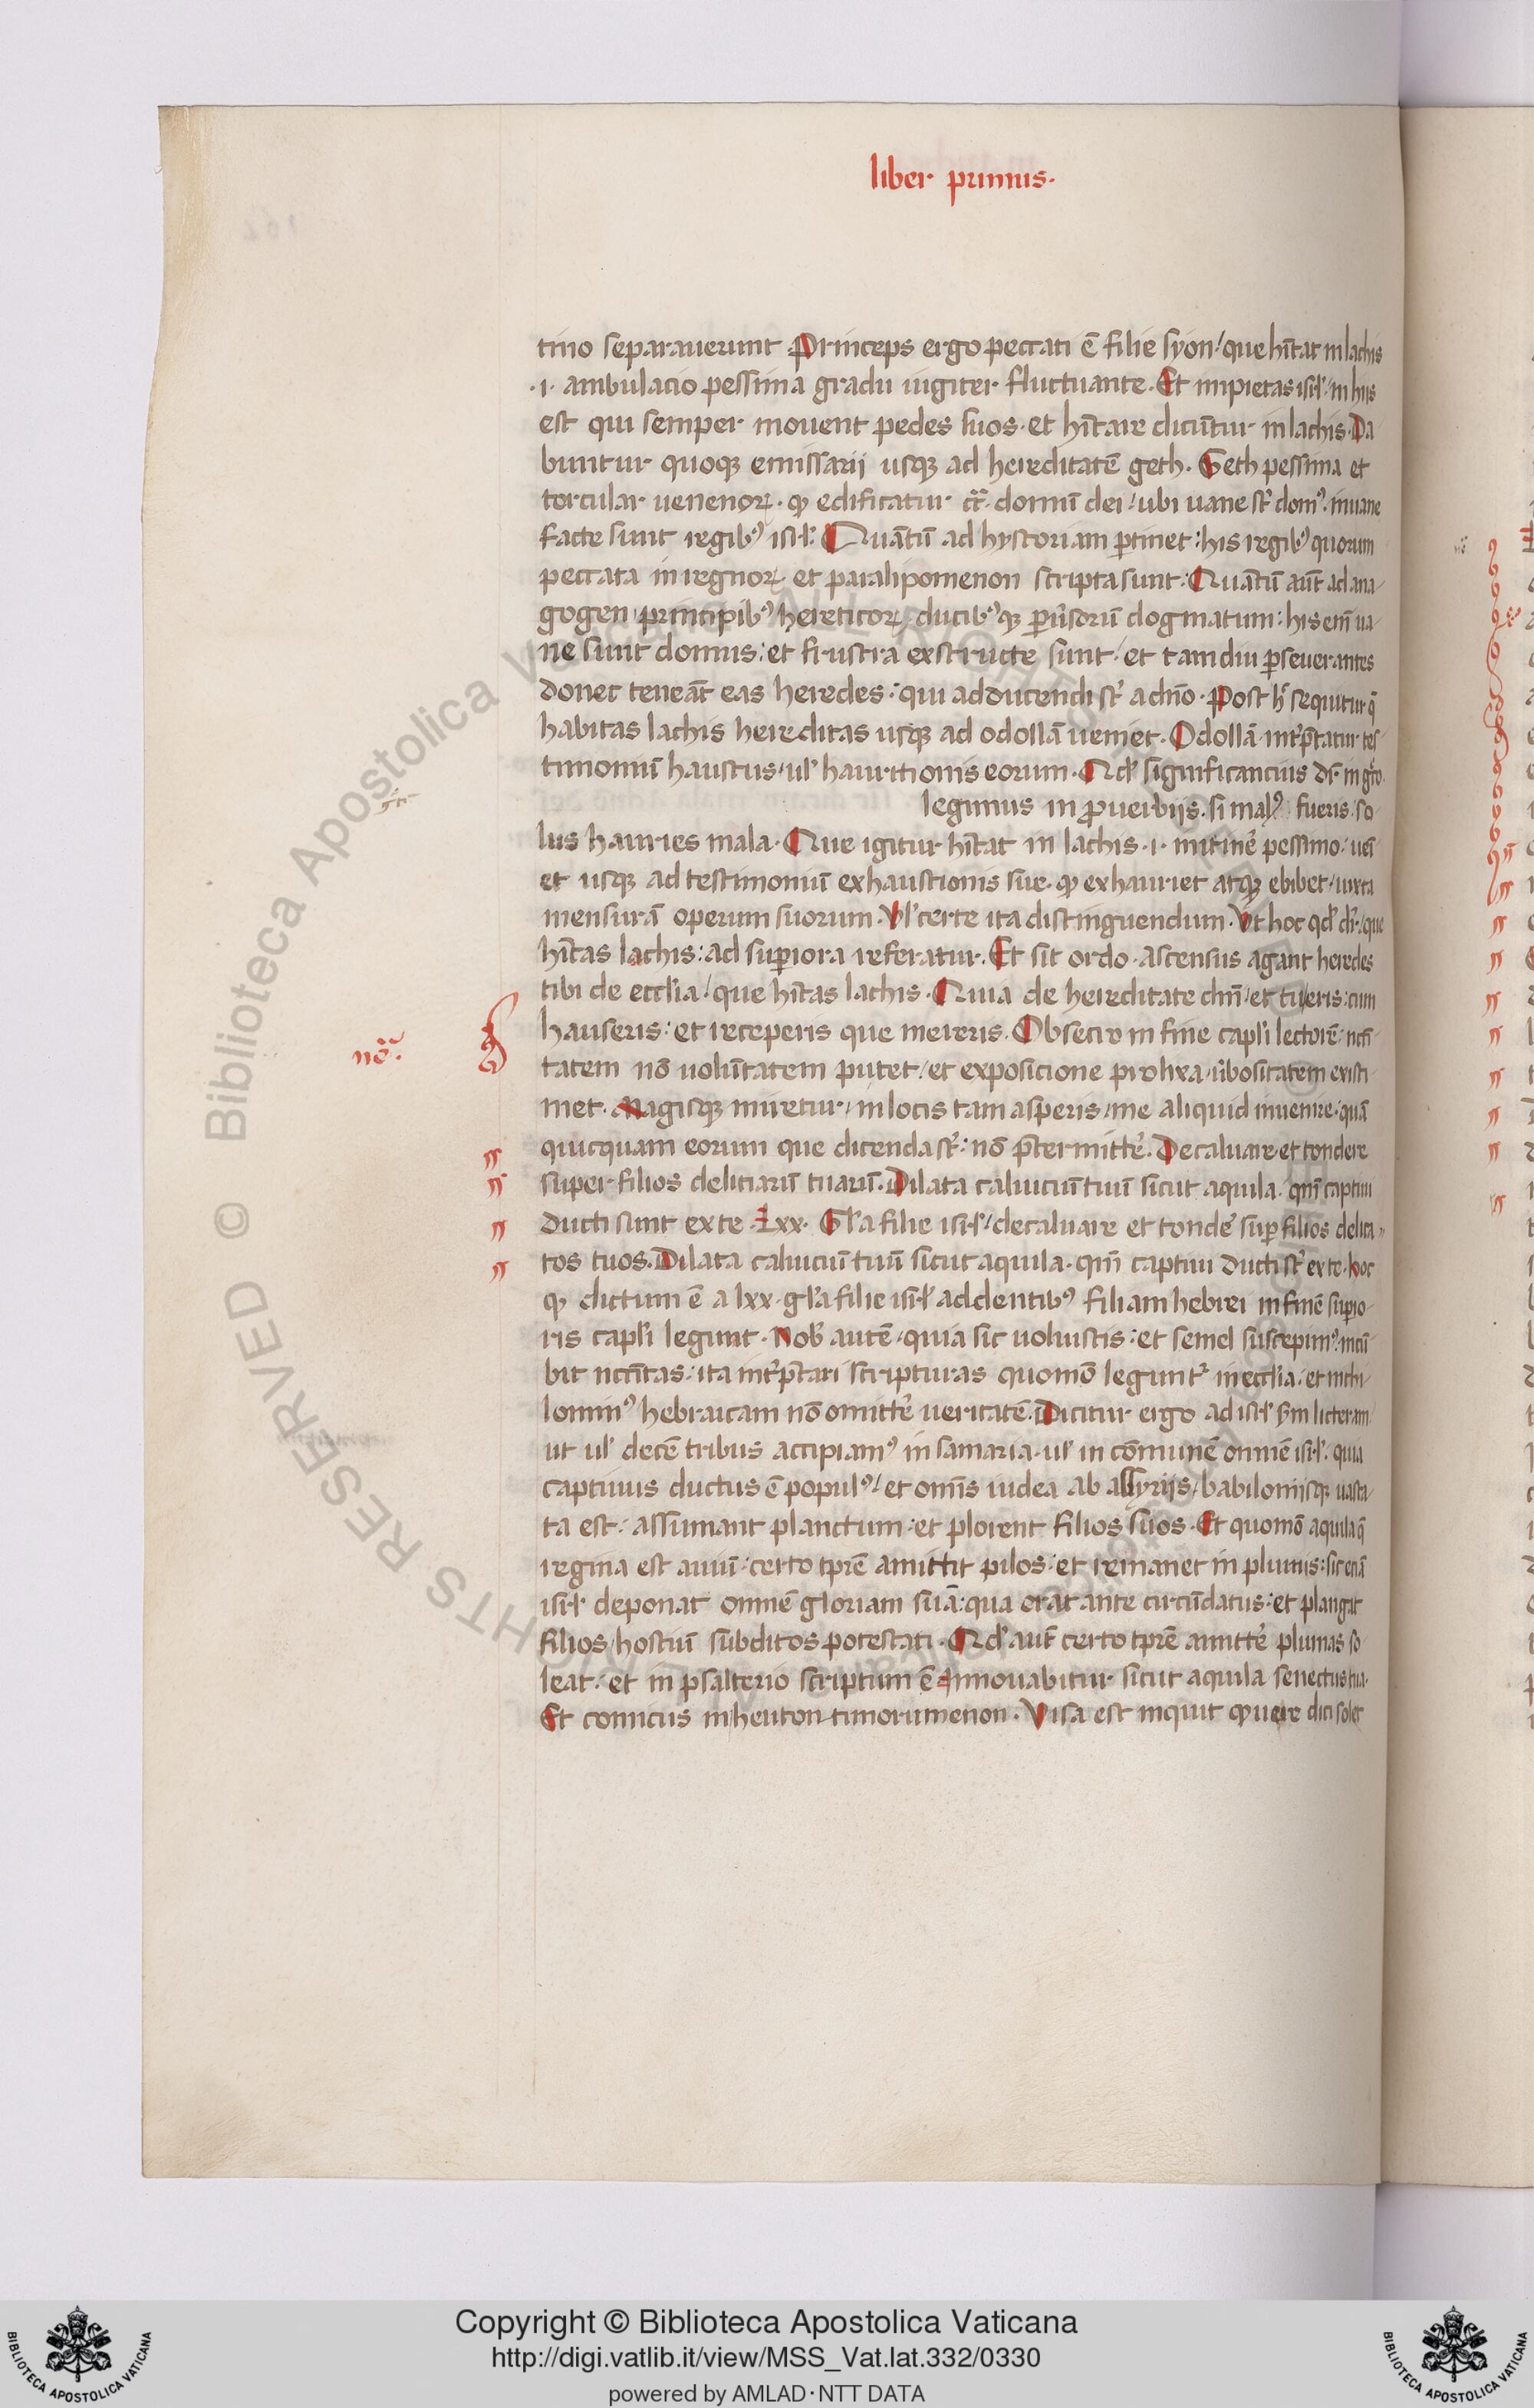 liber primus.
tino separauerunt. Princeps ergo peccati ē filie syon/ que hītat in lachis
.i. ambulacio pessima gradu iugiter fluctuante. Et impietas isrl̓. in hijs
est qui semper mouent pedes suos. et hītare dicūtur in lachis. Da
buntur quoqꝫ emissarij usqꝫ ad hereditatē geth. Geth pessima et
torcular uenenoꝝ. qꝫ edificatur domū dei/ ubi uane st̓ domꝰ. inuane
facte sunt regibꝰ isrl̓. Quātū ad hystoriam ꝑtinet: his regibꝰ quorum
peccata in regnoꝝ et paralipomenon scripta sunt: Quātū aūt ad ana-
gogen principibꝰ hereticoꝝ ducibꝰqꝫ ꝑuͥsorū dogmatum: his em̄ ua-
ne sunt domus: et frustra exstructe sunt/ et tamdiu ꝑseuerantes
donec teneāt eas heredes: qui adducendi st̓ a dn̄o. Post h̓ sequitur q̄
habitas lachis hereditas usqꝫ ad odollā ueniet. Odollā int̓ꝑtatur tes-
timoniū haustus/ ul̓ hauritionis eorum. Qd̓ significancius dr̓ in gͣco.
legimus in ꝓuerbijs. si malꝰ fueris. so
lus hauries mala. Que igitur hītat in lachis .i. in itiner̓ pessimo/
et usqꝫ ad testimoniū exhaustionis sue. qꝫ exhauriet atqꝫ ebibet/ iuxta
mensurā operum suorum. Ul̓ certe ita distinguendum. Ut hoc qd̓ dr̓/ que
hītas lachis: ad suꝑiora referatur. Et sit ordo. ascensus agant heredes
tibi de eccl̓ia/ que hītas lachis. Quia de hereditate dn̄i et tu eris: cum
nō.
hauseris: et receperis que mereris. Obsecro in fine capl̓i lectorē: ncc̄i-
tatem nō uolūtatem putet/ et exposicione prolixa/ ūbositatem existi-
met. Magisqꝫ miretur/ in locis tam asperis/ me aliquid inuenire/ quā
quicquam eorum que dicenda st̓: nō p̄termitter̓. Decaluare et tondere
super filios deliciarū tuarū. Dilata caluiciū tuū sicut aquila. qm̄ captiui
ducti sunt ex te. Lxx. Gl̓a filie isrl̓/ decaluare et tonder̓ suꝑ filios delica-
tos tuos. Dilata caluiciū tuū sicut aquila. qm̄ captiui ducti st̓ ex te. hoc
qꝫ dictum ē a lxx. gl̓a filie isrl̓ addentibꝰ filiam hebrei in finē suꝑio-
ris capl̓i legunt. Nob̓ autē/ quia sic uoluistis: et semel suscepimꝰ. incū-
bit nccītas: ita int̓ꝑtari scripturas quomō legunt̓ in eccl̓ia/ et nichi-
lominꝰ hebraicam nō omitter̓ ueritatē. Dicitur ergo ad isrl̓ scd̄m licteram.
ut ul̓ decē tribus accipiamꝰ in samaria. ul̓ in cōmunē omnē isrl̓: quia
captiuus ductus ē populꝰ/ et omīs iudea ab assyrijs/ babilonijsqꝫ uasta-
ta est: assumant planctum: et plorent filios suos. Et quomō aquila q̄
regina est auiū: certo tpr̄e amittit pilos: et remanet in plumis: sic eciā
isrl̓ deponat omnē gloriam suā: qua erat ante circūdatus: et plangat
filios/ hostiū subditos potestati. Qd̓ aūt certo tpr̄e amitter̓ plumas so
leat: et in psalterio scriptum ē Innouabitur sicut aquila senectus tua.
Et comicus inheuton timorumenon. Visa est inquit ꝙ uere dici solet
Copyright © Biblioteca Apostolica Vaticana
http://digi.vatlib.it/view/MSS_Vat.lat.332/0330
powered by AMLAD·NTT DATA